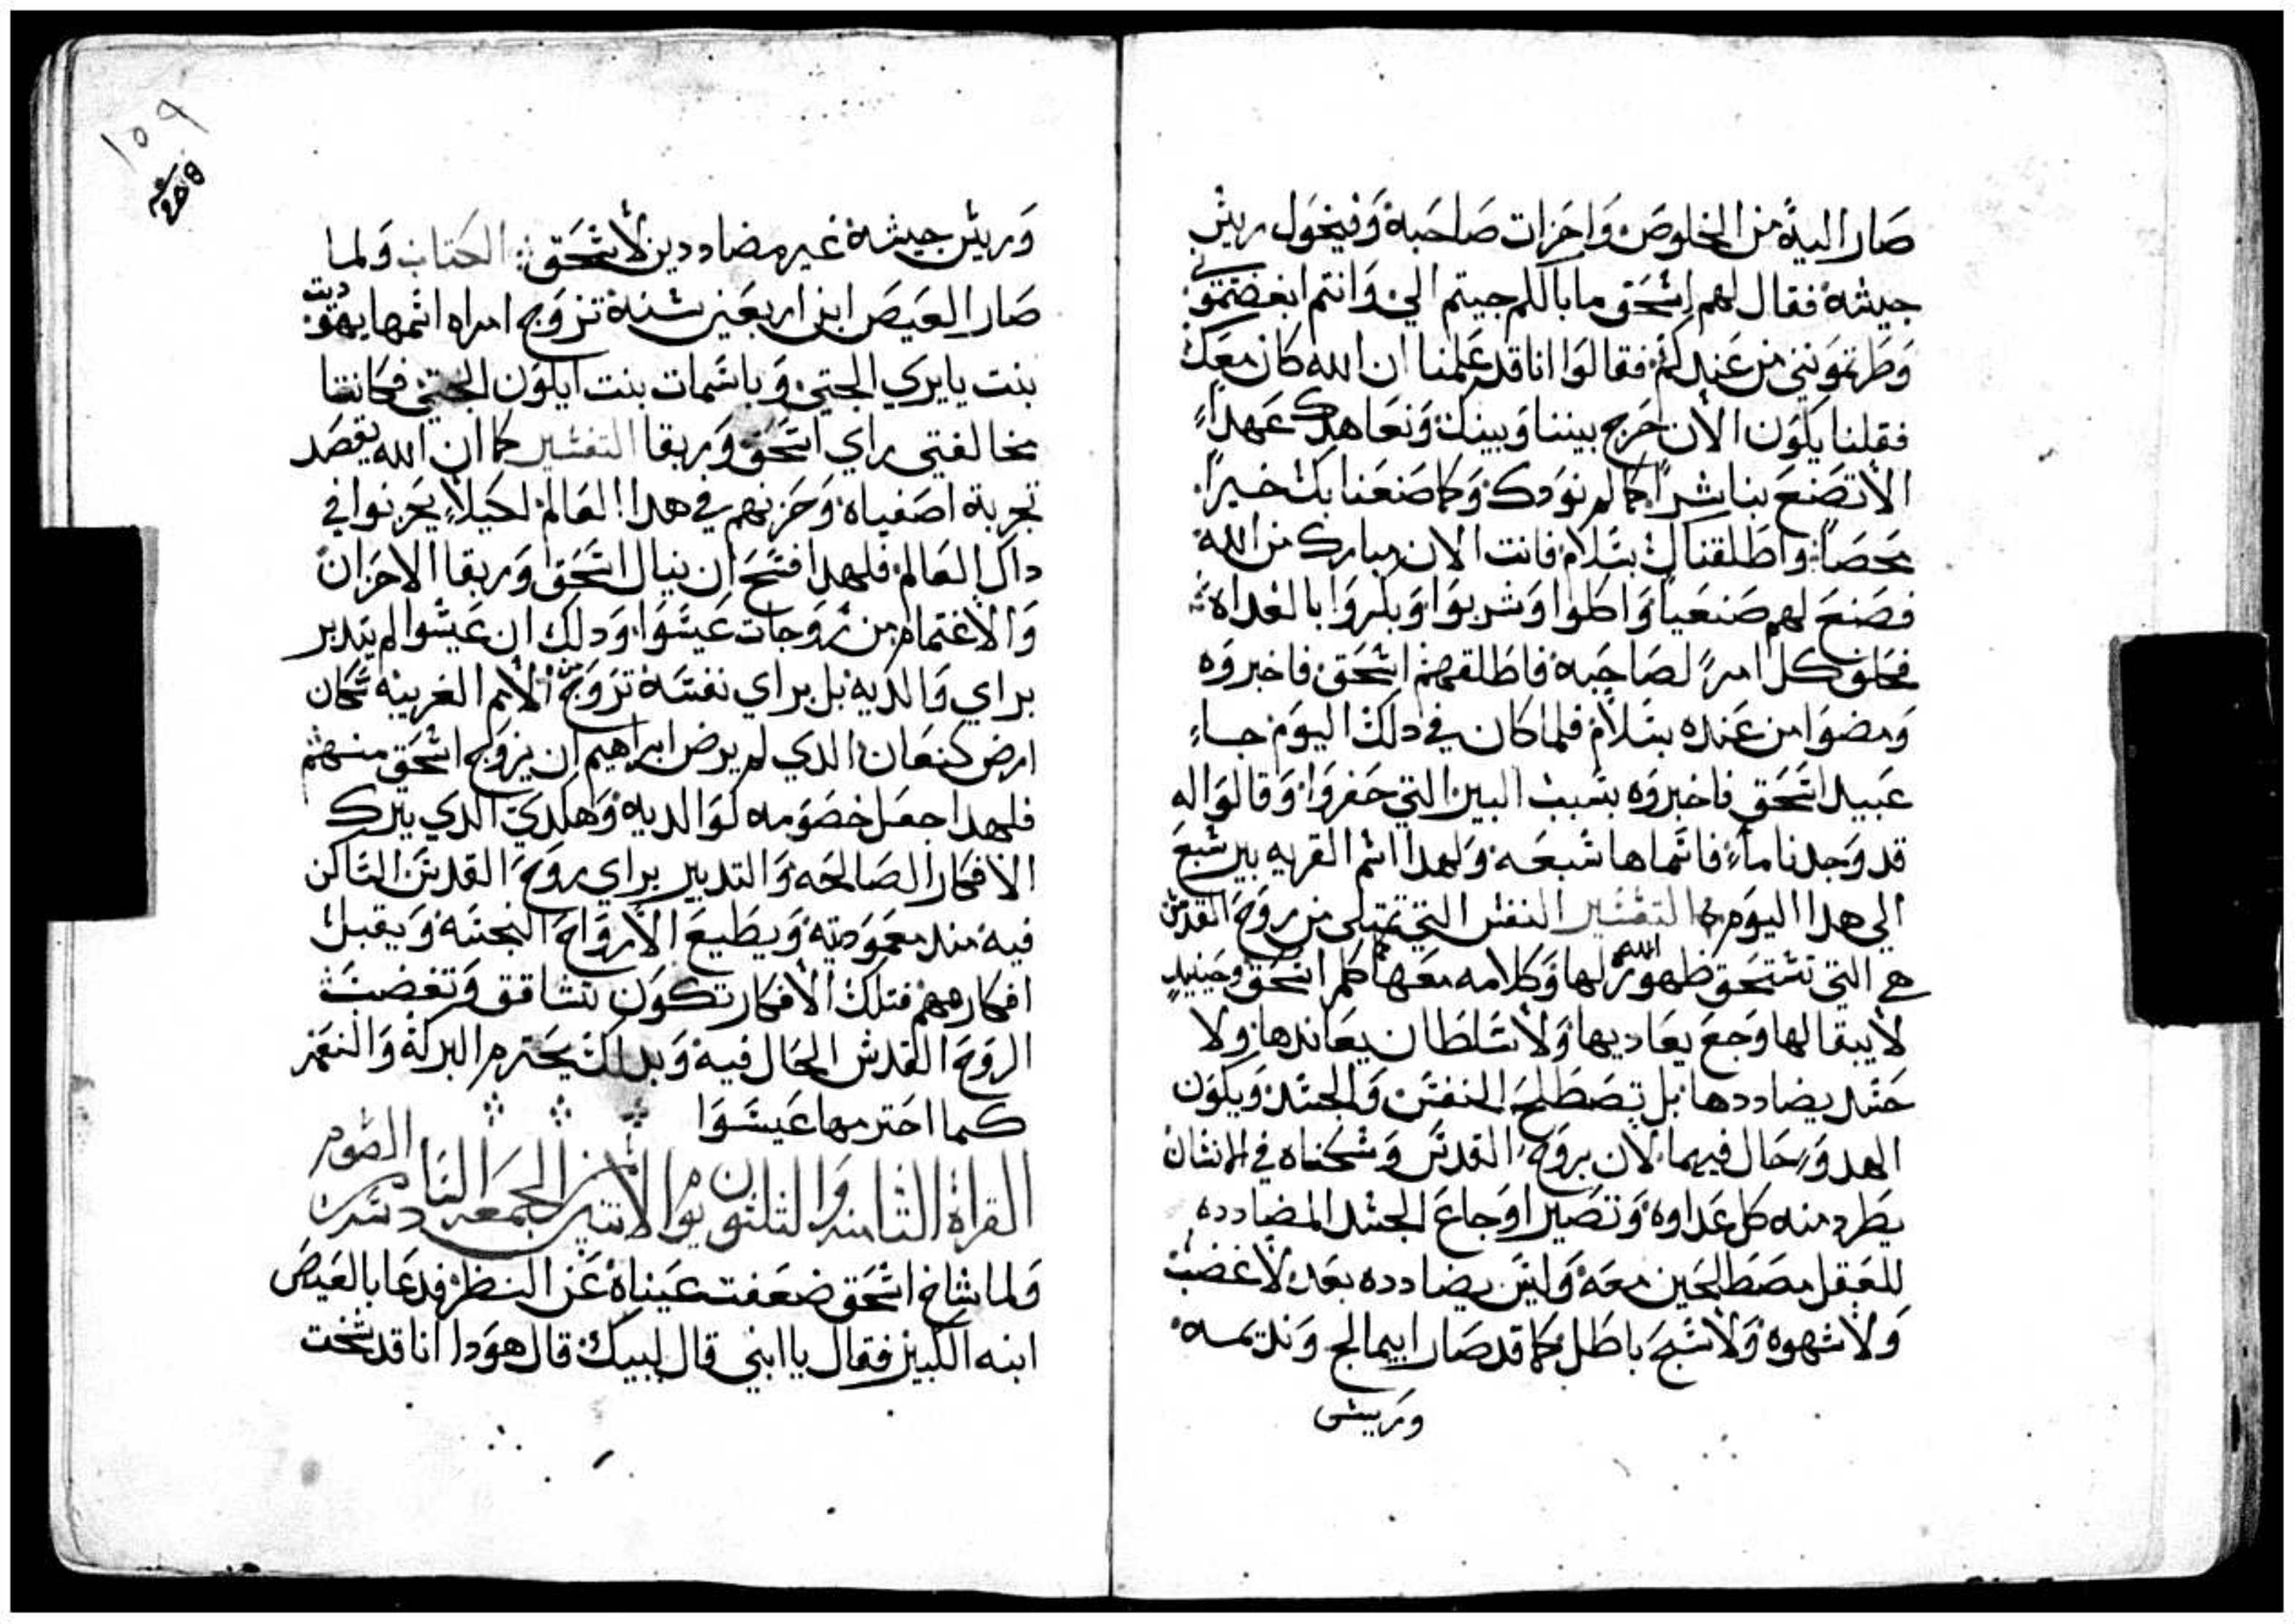 صار اليه من الخلوص واحزات صاحبه وفيخول ريش
جيشه فقال لهم اسحق ما بالكم جيتم الي وانتم ابغضتموني
وطرتموني من عندكم فقالوا انا قد علمنا ان الله كان معك
فقلنا يكون الان حرج بيننا وبينك ونعاهدك عهداً
الا تصنع بنا شراً كما لم نودك وكما صنعنا بك خيراً
محصاً واطلقناك بسلام فانت الان مبارك من الله
فصنع لهم صنعياً واكلوا وشربوا وبكروا بالغداه
فحلف كل امرً لصاحبه فاطلقهم اسحق فاخبروه
ومضوا من عنده بسلام فلما كان في دلك اليوم جاء
عبيد اسحق فاخبروه بسبب البير التي حفروا وقالوا له
قد وجدنا ماء فاسماها شبعه ولهدا اسم القريه بير شبع
الي هدا اليوم التفسير النفس التي تمتلي من روح القدس
هي التي تستحق ظهور الله لها وكلامه معها كما كلم اسحق وحينيد
لا يبقا لها وجع يعاديها ولا سلطان يعاندها ولا
حسد يضاددها بل تصطلح النفس والجسد ويكون
الهدو حال فيهما لان بروح القدس وسكناه في الانسان
يطرد منه كل عداوه وتصير اوجاع الجسد المضادده
للعقل مصطلحين معه وليس يضادده بعد لا غضب
ولا شهوه ولا سبح باطل كما قد صار ابيمالج ونديمه
وريش
١٥٩
وريش جيشه غير مضاددين لاسحق الكتاب ولما
صار العيص ابن اربعين سنه تزوج امراه اسمها يهوديت
بنت يايري الحتي وباسمات بنت ايلون الحتي فكانتا
مخالفتي راي اسحق وربقا التفسير كما ان الله يقصد
تجربة اصفياه وحزنهم في هدا العالم لكيلا يحزنوا في
داك العالم فلهدا فسح ان ينال اسحق وربقا الاحزان
والاغتمام من زوجات عيسوا ودلك ان عيسوا لم يتدبر
براي والديه بل براي نفسه تزوج من الامم الغريبه سكان
ارض كنعان الدي لم يرض ابراهيم ان يزوج اسحق منهم
فلهدا جعل خصومه لوالديه وهكدي الدي يترك
الافكار الصالحه والتدبير براي روح القدس الساكن
فيه مند معموديته ويطيع الارواح النجسه ويقبل
افكارهم فتلك الافكار تكون تشاقق وتغضب
الروح القدس الحال فيه وبدلك يحترم البركه والنعم
كما احترمها عيسوا
القراة الثامنه والتلتون يوم الاتنين من الجمعه السادسه من الصوم
ولما شاخ اسحق ضعفت عيناه عن النظر فدعا بالعيص
ابنه الكبير فقال يا ابني قال لبيك قال هودا انا قد شخت